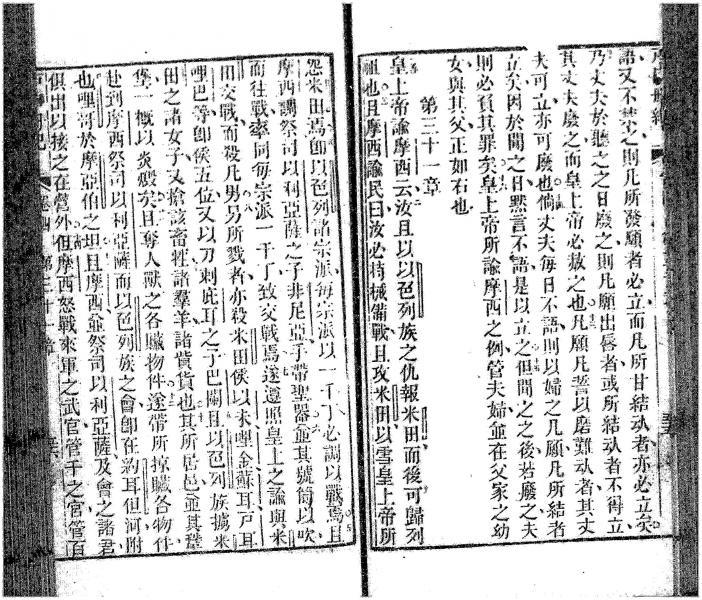 語又不禁之則凡所發願者必立而凡所甘結劝者亦必立矣
乃丈夫於聽之之日廢之則凡願出唇者或所結劝者不得立
其丈夫廢之而皇上帝必赦之也凡願凡誓以磨難劝者其丈
夫可立亦可廢也倘丈夫每日不語則以婦之凡願凡所結者
立矣因於聞之日默言不語是以立之但聞之之後若廢之夫
則必負其罪矣皇上帝所諭摩西之例管夫婦並在父家之幼
女與其父正如右也
第三十一章
皇上帝諭摩西云汝且以以色列族之仇報米田而後可歸列
祖也且摩西諭民曰汝必持械備戰且攻米田以雪皇上帝所
怨米田焉卽以色列諸宗派每宗派以一千丁必調以戰焉且
摩西調祭司以利亞薩之子非尼亞手帶聖器並其號筒以吹
而往戰率同每宗派一千丁致交戰焉遂遵照皇上之諭與米
田交戰而殺凡男另所戮者亦殺米田侯以未哩金蘇耳戸耳
哩巴等卽侯五位又以刀刺庇耳之子巴闌且以色列族擄米
田之諸女子又搶該畜牲諸羣羊諸貲貨也其所居邑並其鞏
堡一概以炎燬矣且奪人獸之各贓物件遂帶所掠贓各物件
赴到摩西祭司以利亞薩而以色列族之會卽在約耳但河附
也哩哥於摩亞伯之坦且摩西並祭司以利亞薩及會之諸君
俱出以接之在營外但摩西怒戰來軍之武官管千之官管百
第三十一章